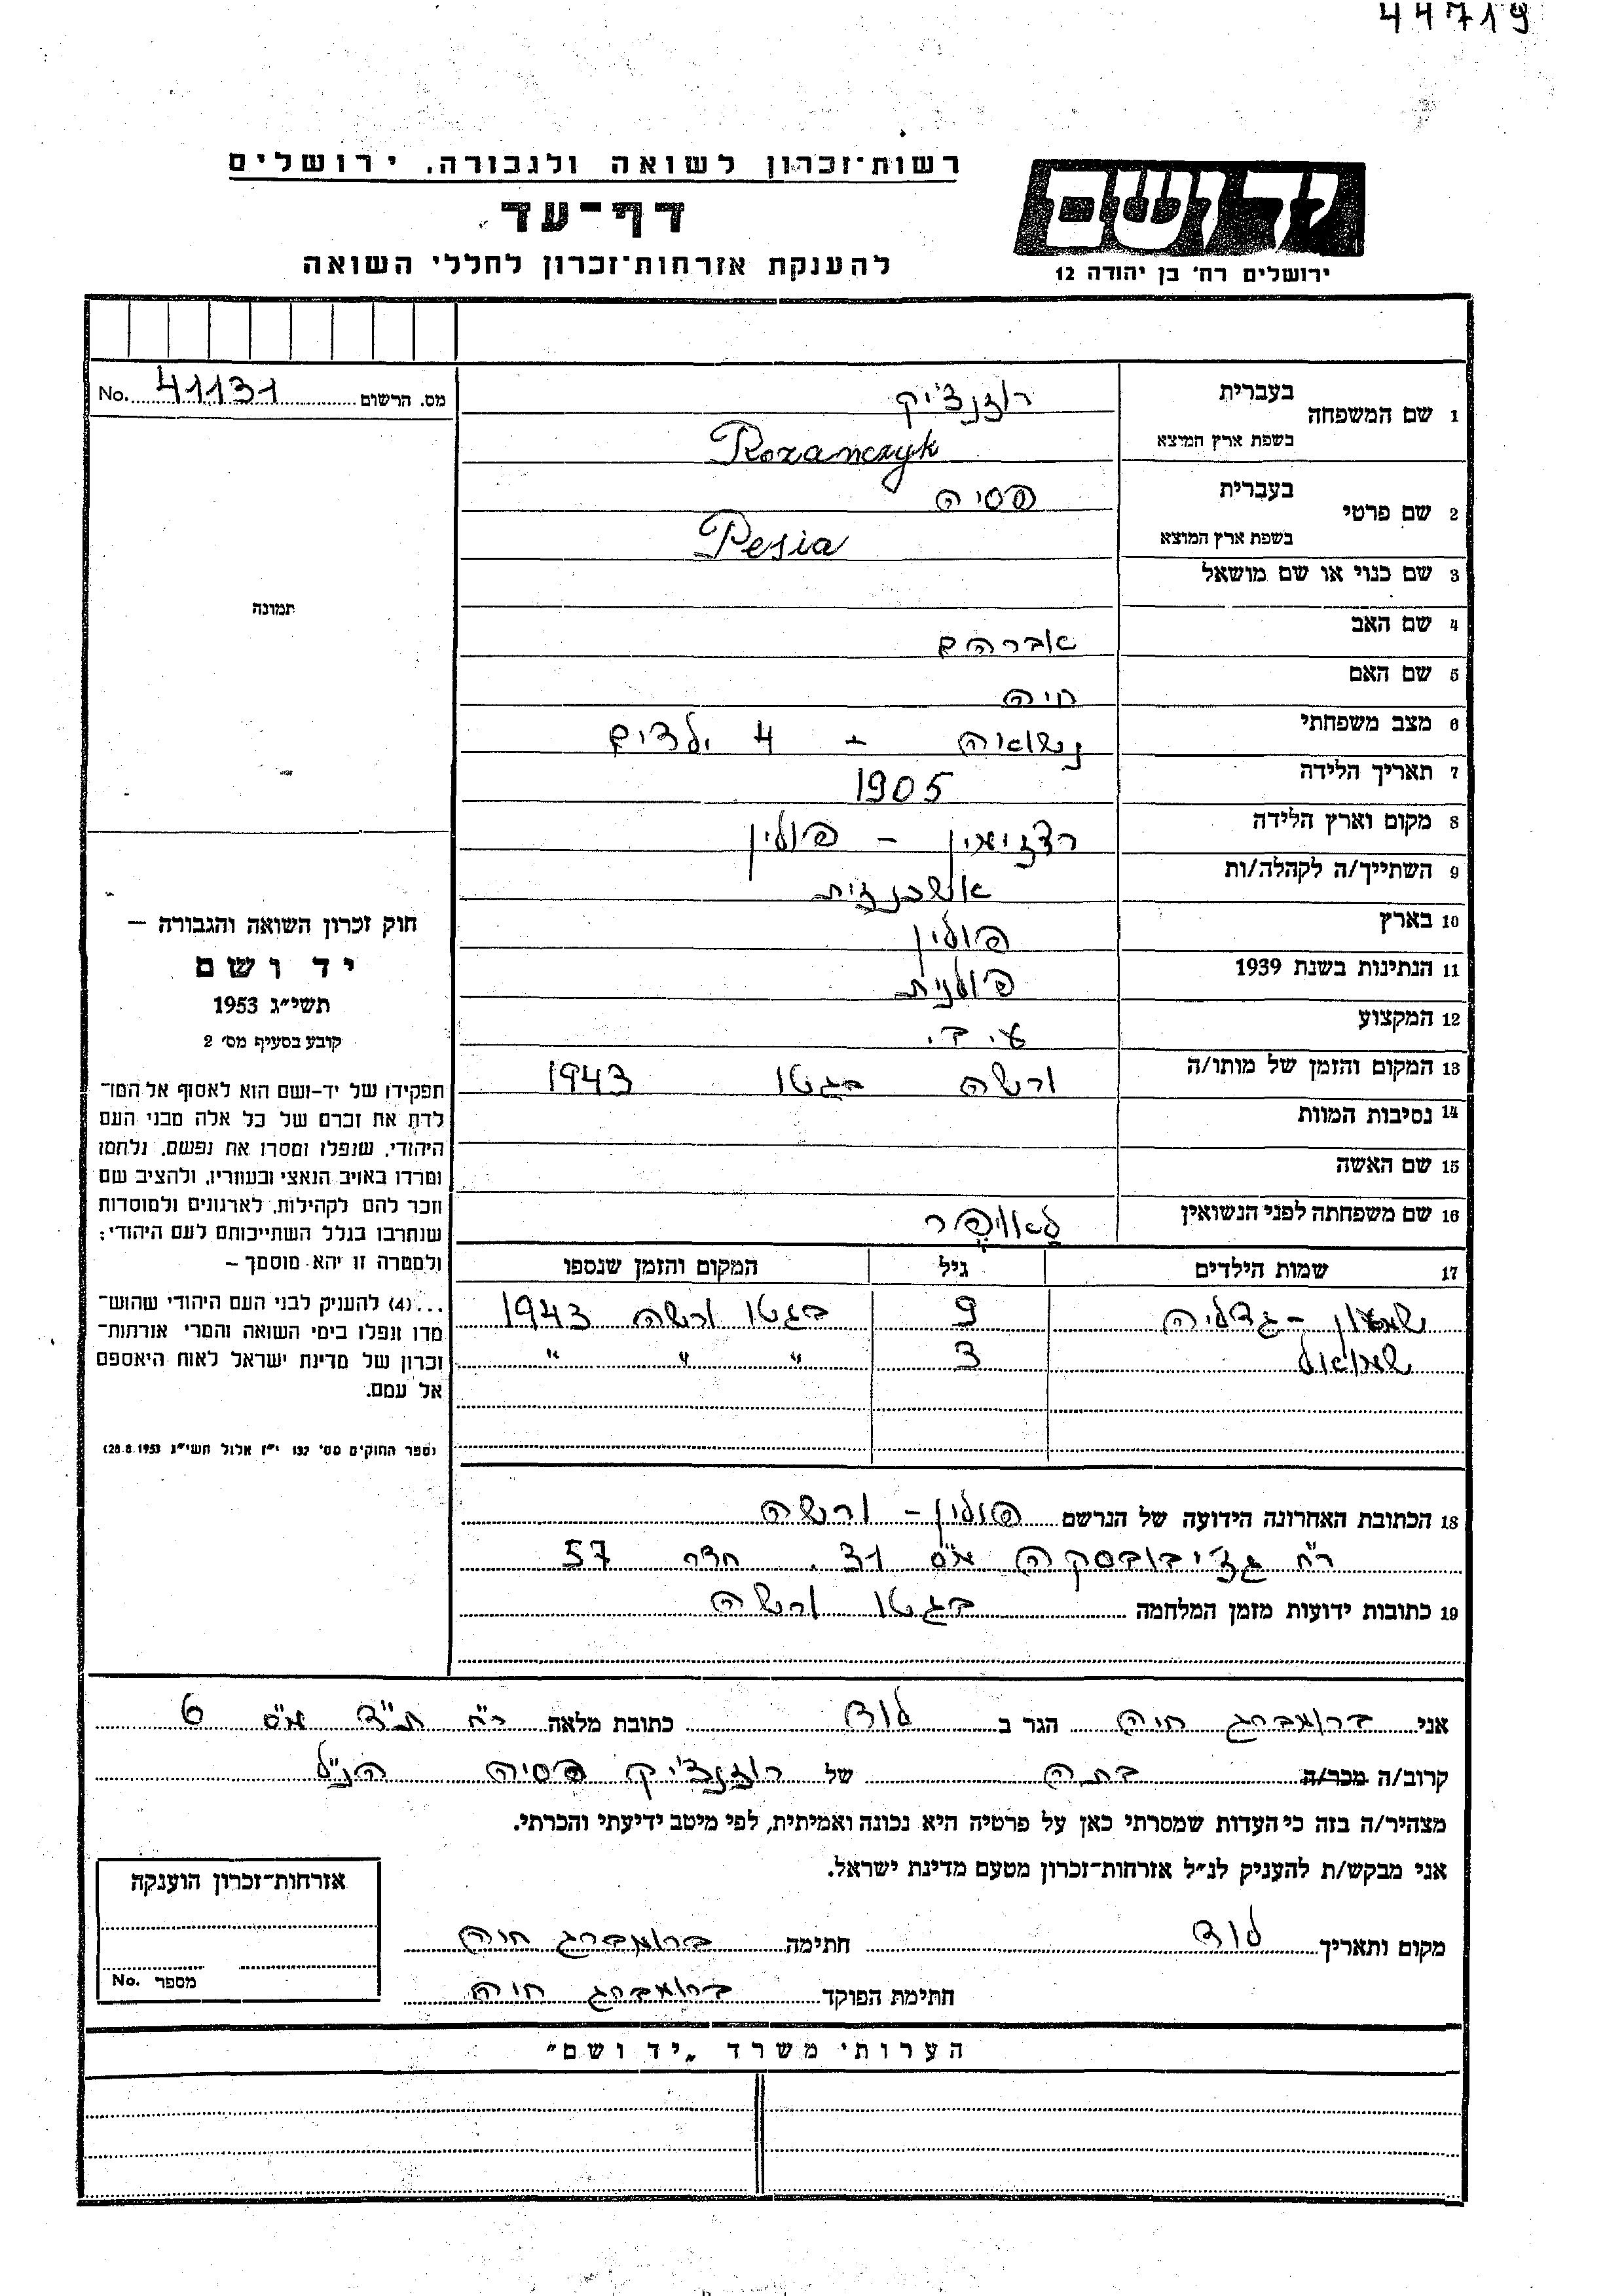 44719
רשות־זכרון לשואה ולגבורה, ירושלים
יד ושם
דף־עד
להענקת אזרחות־זכרון לחללי השואה
ירושלים רח' בן יהודה 12
מס. הרשום 41131 No.
1 שם המשפחה בעברית רוזנצ'יק
בשפת ארץ המוצא Rozanczyk
2 שם פרטי בעברית פסיה
בשפת ארץ המוצא Pesia
3 שם כנוי או שם מושאל
4 שם האב אברהם
5 שם האם חיה
6 מצב משפחתי נשואה - 4 ילדים
7 תאריך הלידה 1905
8 מקום וארץ הלידה רדזימין - פולין
9 השתייך/ה לקהלה/ות אשכנזית
10 בארץ פולין
11 הנתינות בשנת 1939 פולנית
12 המקצוע
13 המקום והזמן של מותו/ה ורשה בגטו 1943
14 נסיבות המוות
15 שם האשה
16 שם משפחתה לפני הנשואין
17 שמות הילדים גיל המקום והזמן שנספו
שמעון - גדליה 9 בגטו ורשה 1943
שמואל 3 " " "
תמונה
חוק זכרון השואה והגבורה –
יד ושם
תשי״ג 1953
קובע בסעיף מס' 2
תפקידו של יד-ושם הוא לאסוף אל המו־
לדת את זכרם של כל אלה מבני העם
היהודי, שנפלו ומסרו את נפשם, נלחמו
ומרדו באויב הנאצי ובעוזריו, ולהציב שם
וזכר להם לקהילות, לארגונים ולמוסדות
שנחרבו בגלל השתייכותם לעם היהודי;
ולמטרה זו יהא מוסמך –
...(4) להעניק לבני העם היהודי שהוש־
מדו ונפלו בימי השואה והמרי אזרחות־
זכרון של מדינת ישראל לאות היאספם
אל עמם.
(ספר החוקים מס' 132 י״ז אלול תשי״ג 28.8.1953)
18 הכתובת האחרונה הידועה של הנרשם פולין - ורשה
רח' גז'יבובסקה מס' 31. חדר 57
19 כתובות ידועות מזמן המלחמה בגטו ורשה
אני ברומברג חיה הגר ב לוד כתובת מלאה רח' חב"ד מס' 6
קרוב/ה מכר/ה בתה של רוזנצ'יק פסיה הנ"ל
מצהיר/ה בזה כי העדות שמסרתי כאן על פרטיה היא נכונה ואמיתית, לפי מיטב ידיעתי והכרתי.
אני מבקש/ת להעניק לנ״ל אזרחות־זכרון מטעם מדינת ישראל.
מקום ותאריך לוד חתימה ברומברג חיה
חתימת הפוקד ברומברג חיה
אזרחות־זכרון הוענקה
מספר No.
הערות משרד „יד ושם״